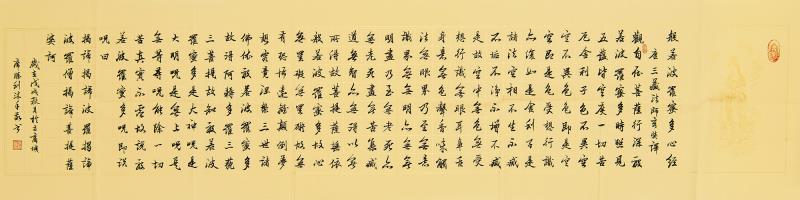 般若波羅蜜多心經
唐三藏法師玄奘譯
觀自在菩薩行深般
若波羅蜜多時照見
五蘊皆空度一切苦
厄舍利子色不異空
空不異色色即是空
空即是色受想行識
亦復如是舍利子是
諸法空相不生不滅
不垢不淨不增不減
是故空中無色無受
想行識無眼耳鼻舌
身意無色聲香味觸
法無眼界乃至無意
識界無無明亦無無
明盡乃至無老死亦
無老死盡無苦集滅
道無智亦無得以無
所得故菩提薩埵依
般若波羅蜜多故心
無罣礙無罣礙故無
有恐怖遠離顛倒夢
想究竟涅槃三世諸
佛依般若波羅蜜多
故得阿耨多羅三藐
三菩提故知般若波
羅蜜多是大神咒是
大明咒是無上咒是
無等等咒能除一切
苦真實不虛故說般
若波羅蜜多咒即說
咒曰
揭諦揭諦波羅揭諦
波羅僧揭諦菩提薩
婆訶
歲在戊戌月於古商城
唐勝利沐手敬書